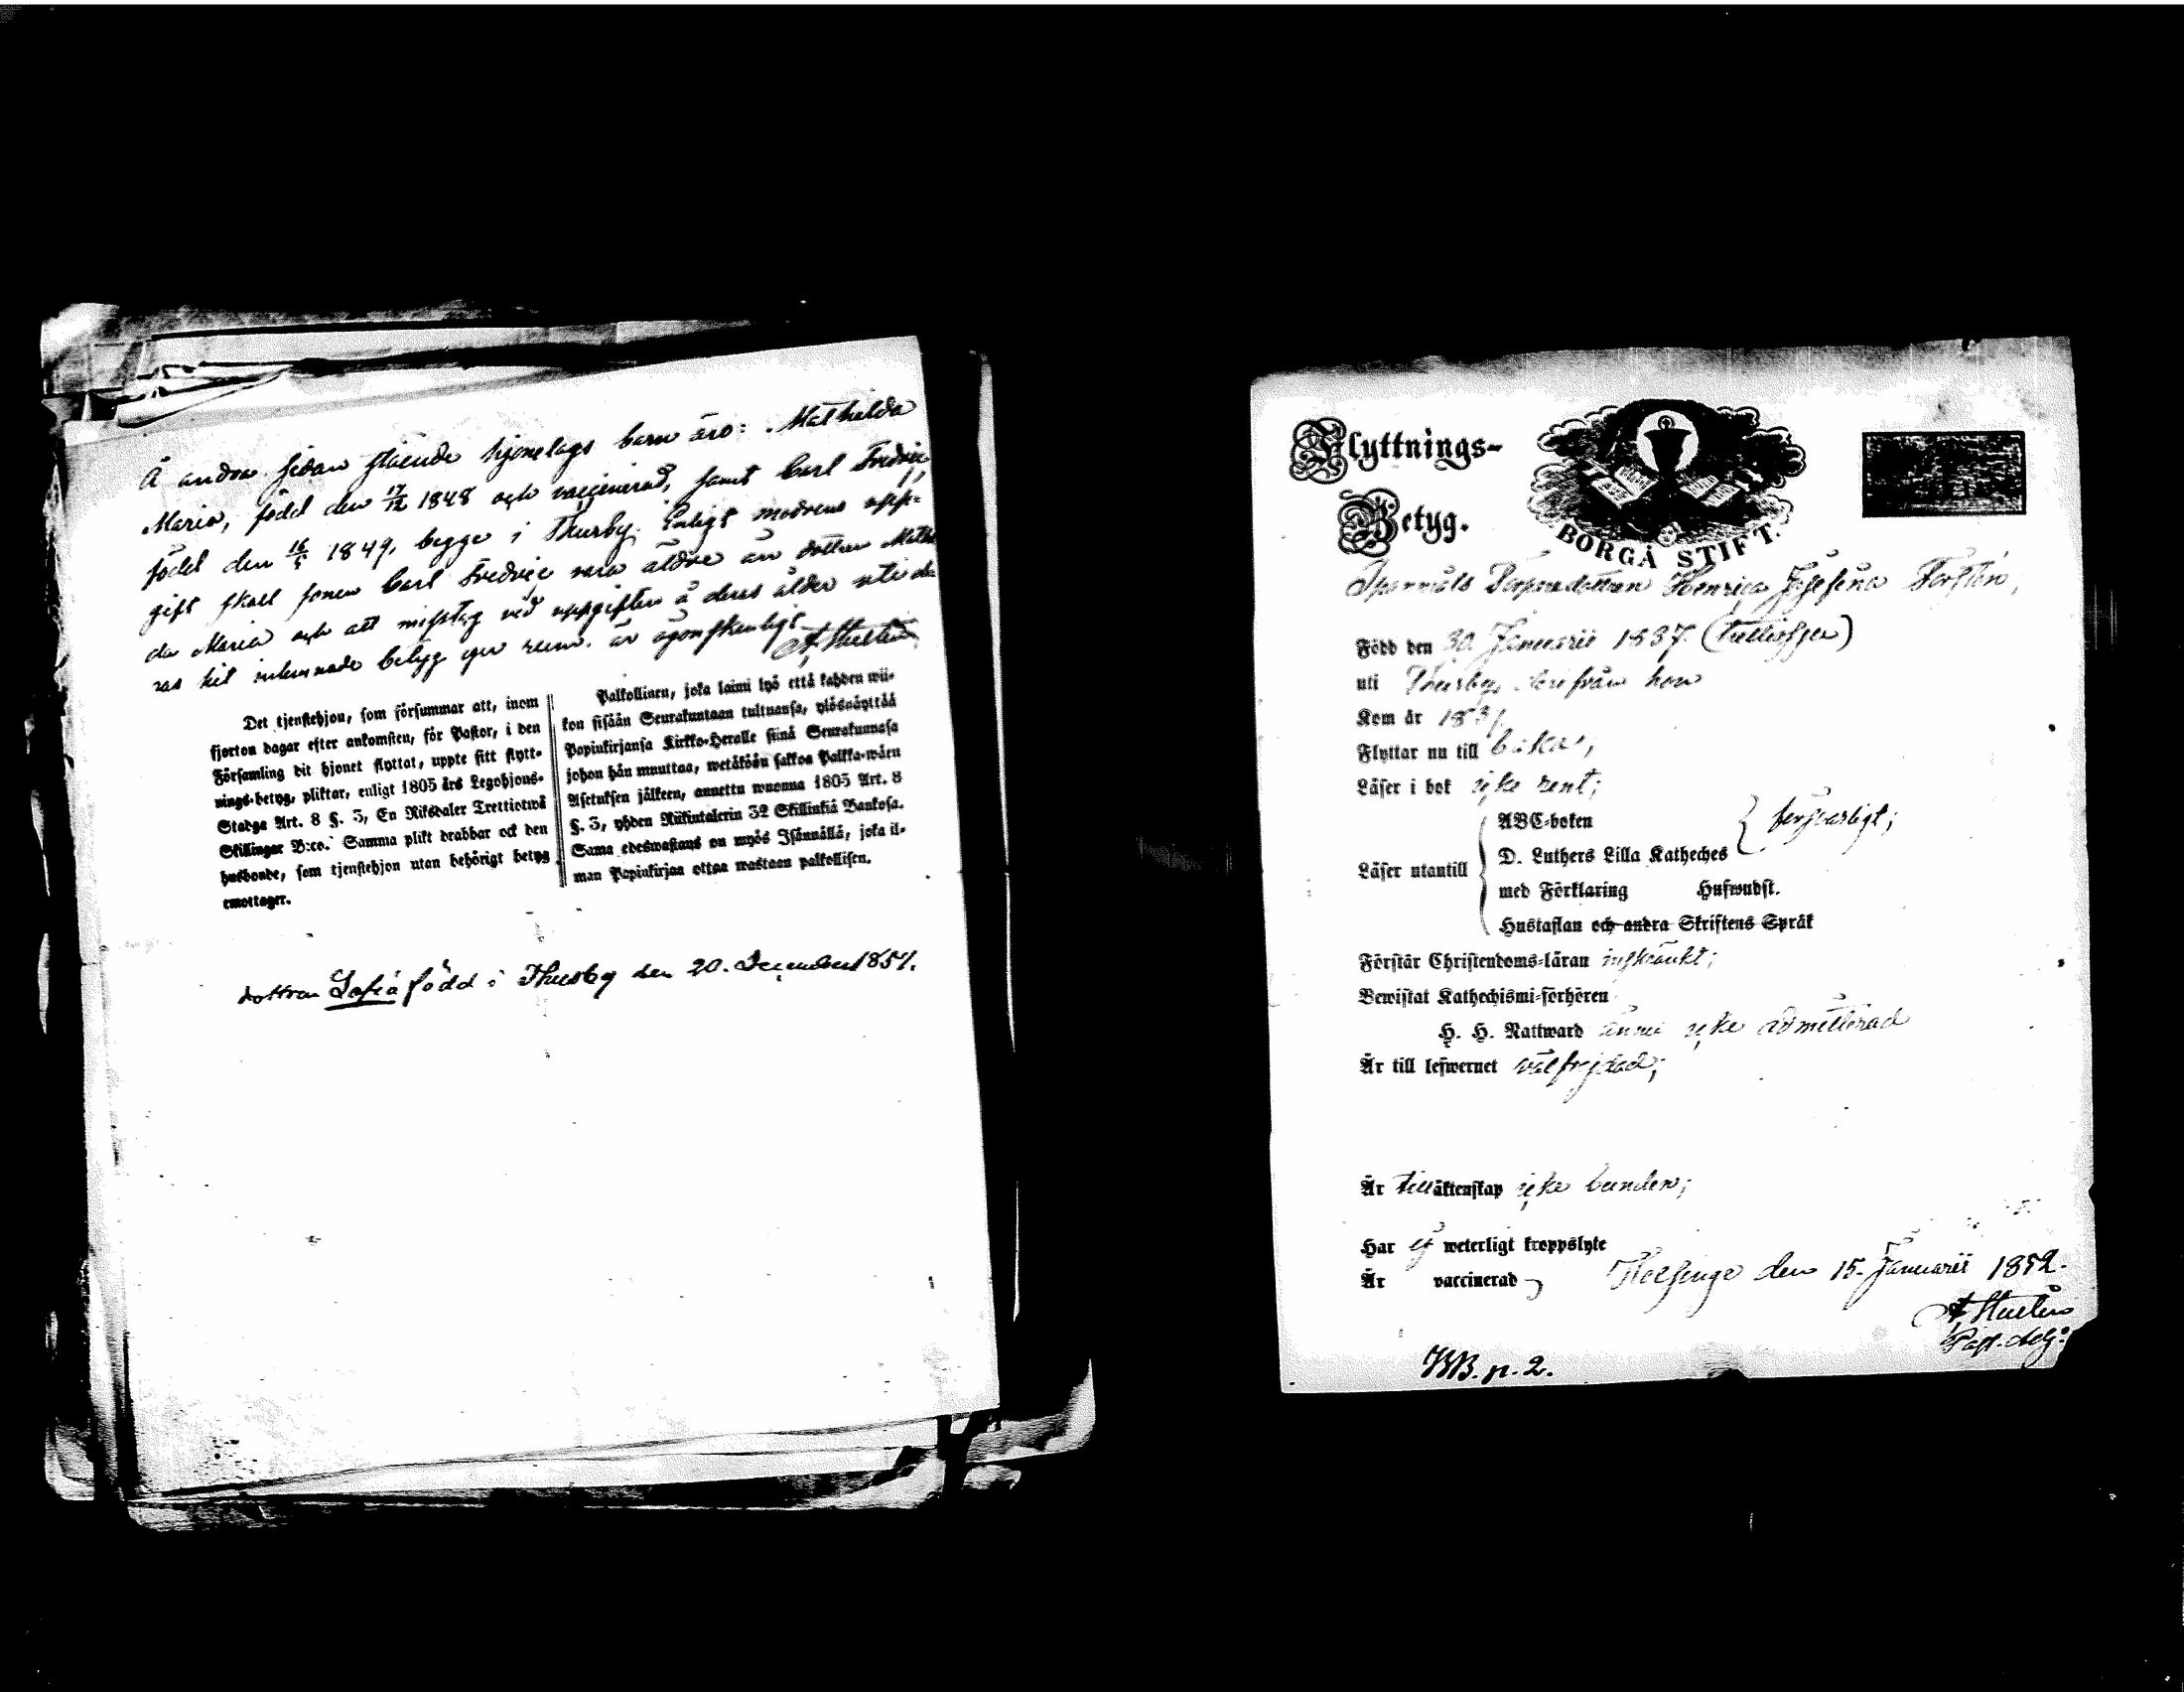 Å andra sidan stående hjonelags barn äro: Mathilda
Maria, född den 17/12 1848 och vaccinerad, samt Carl Fredric,
född den 16/5 1849, begge i Thusby. Enligt modrens upp-
gift skall sonen Carl Fredric vara äldre än dottren Mathil
da Maria och att misstag ved uppgiften å deras ålder uti de
ras hit inlemnade betyg är ögonskenligt
Det tjenstehjon, som försummar att, inom
fjorton dagar efter ankomsten, för Pastor, i den
Församling dit hjonet flyttat, uppte sitt flytt-
nings-betyg, pliktar, enligt 1805 års Legohjons-
Stadga Art. 8 §. 3, En Riksdaler Trettiotwå
Skillingar B:co. Samma plikt drabbar ock den
husbonde, som tjenstehjon utan behörigt betyg
emottager.
Palkollinen, joka laimi lyö että kahden wii-
kon sisään Seurakuntaan tultuansa, ylösnäyttää
Papinkirjansa Kirkko-Herralle siinä Seurakunnasa
johon hän muuttaa, wetäköön sakkoa Palkka-wäen
Asetuksen jälkeen, annettu wuonna 1805 Art. 8
§. 3, yhden Riikintalerin 32 Skillinkiä Bankosa.
Sama edeswastaus on myös Isännällä, joka il-
man Papinkirjaa ottaa wastaan palkollisen.
dottren Sofia född i Thusby den 20. December 1851.
Flyttnings-
Betyg.
BORGÅ STIFT.
Torparedottren Henrica Josefina Forsten,
Född den 30. Januarii 1837.
uti Thusby, derifrån hon
Kom år 1851.
Flyttar nu till baka,
Läser i bok icke rent;
Läser utantill
ABC-boken
D. Luthers Lilla Katheches försvarligt;
med Förklaring Hufwudst.
Hustaflan och andra Skriftens Språk
Förstår Christendoms-läran inskränkt;
Bewistat Kathechismi-förhören
H. H. Nattward ännu icke admitterad
Är till lefwernet välfrejdad;
Är till äktenskap icke bunden;
Har ej weterligt kroppslyte
Är vaccinerad
Helsinge den 15. Januarii 1852.
KB. p. 2.